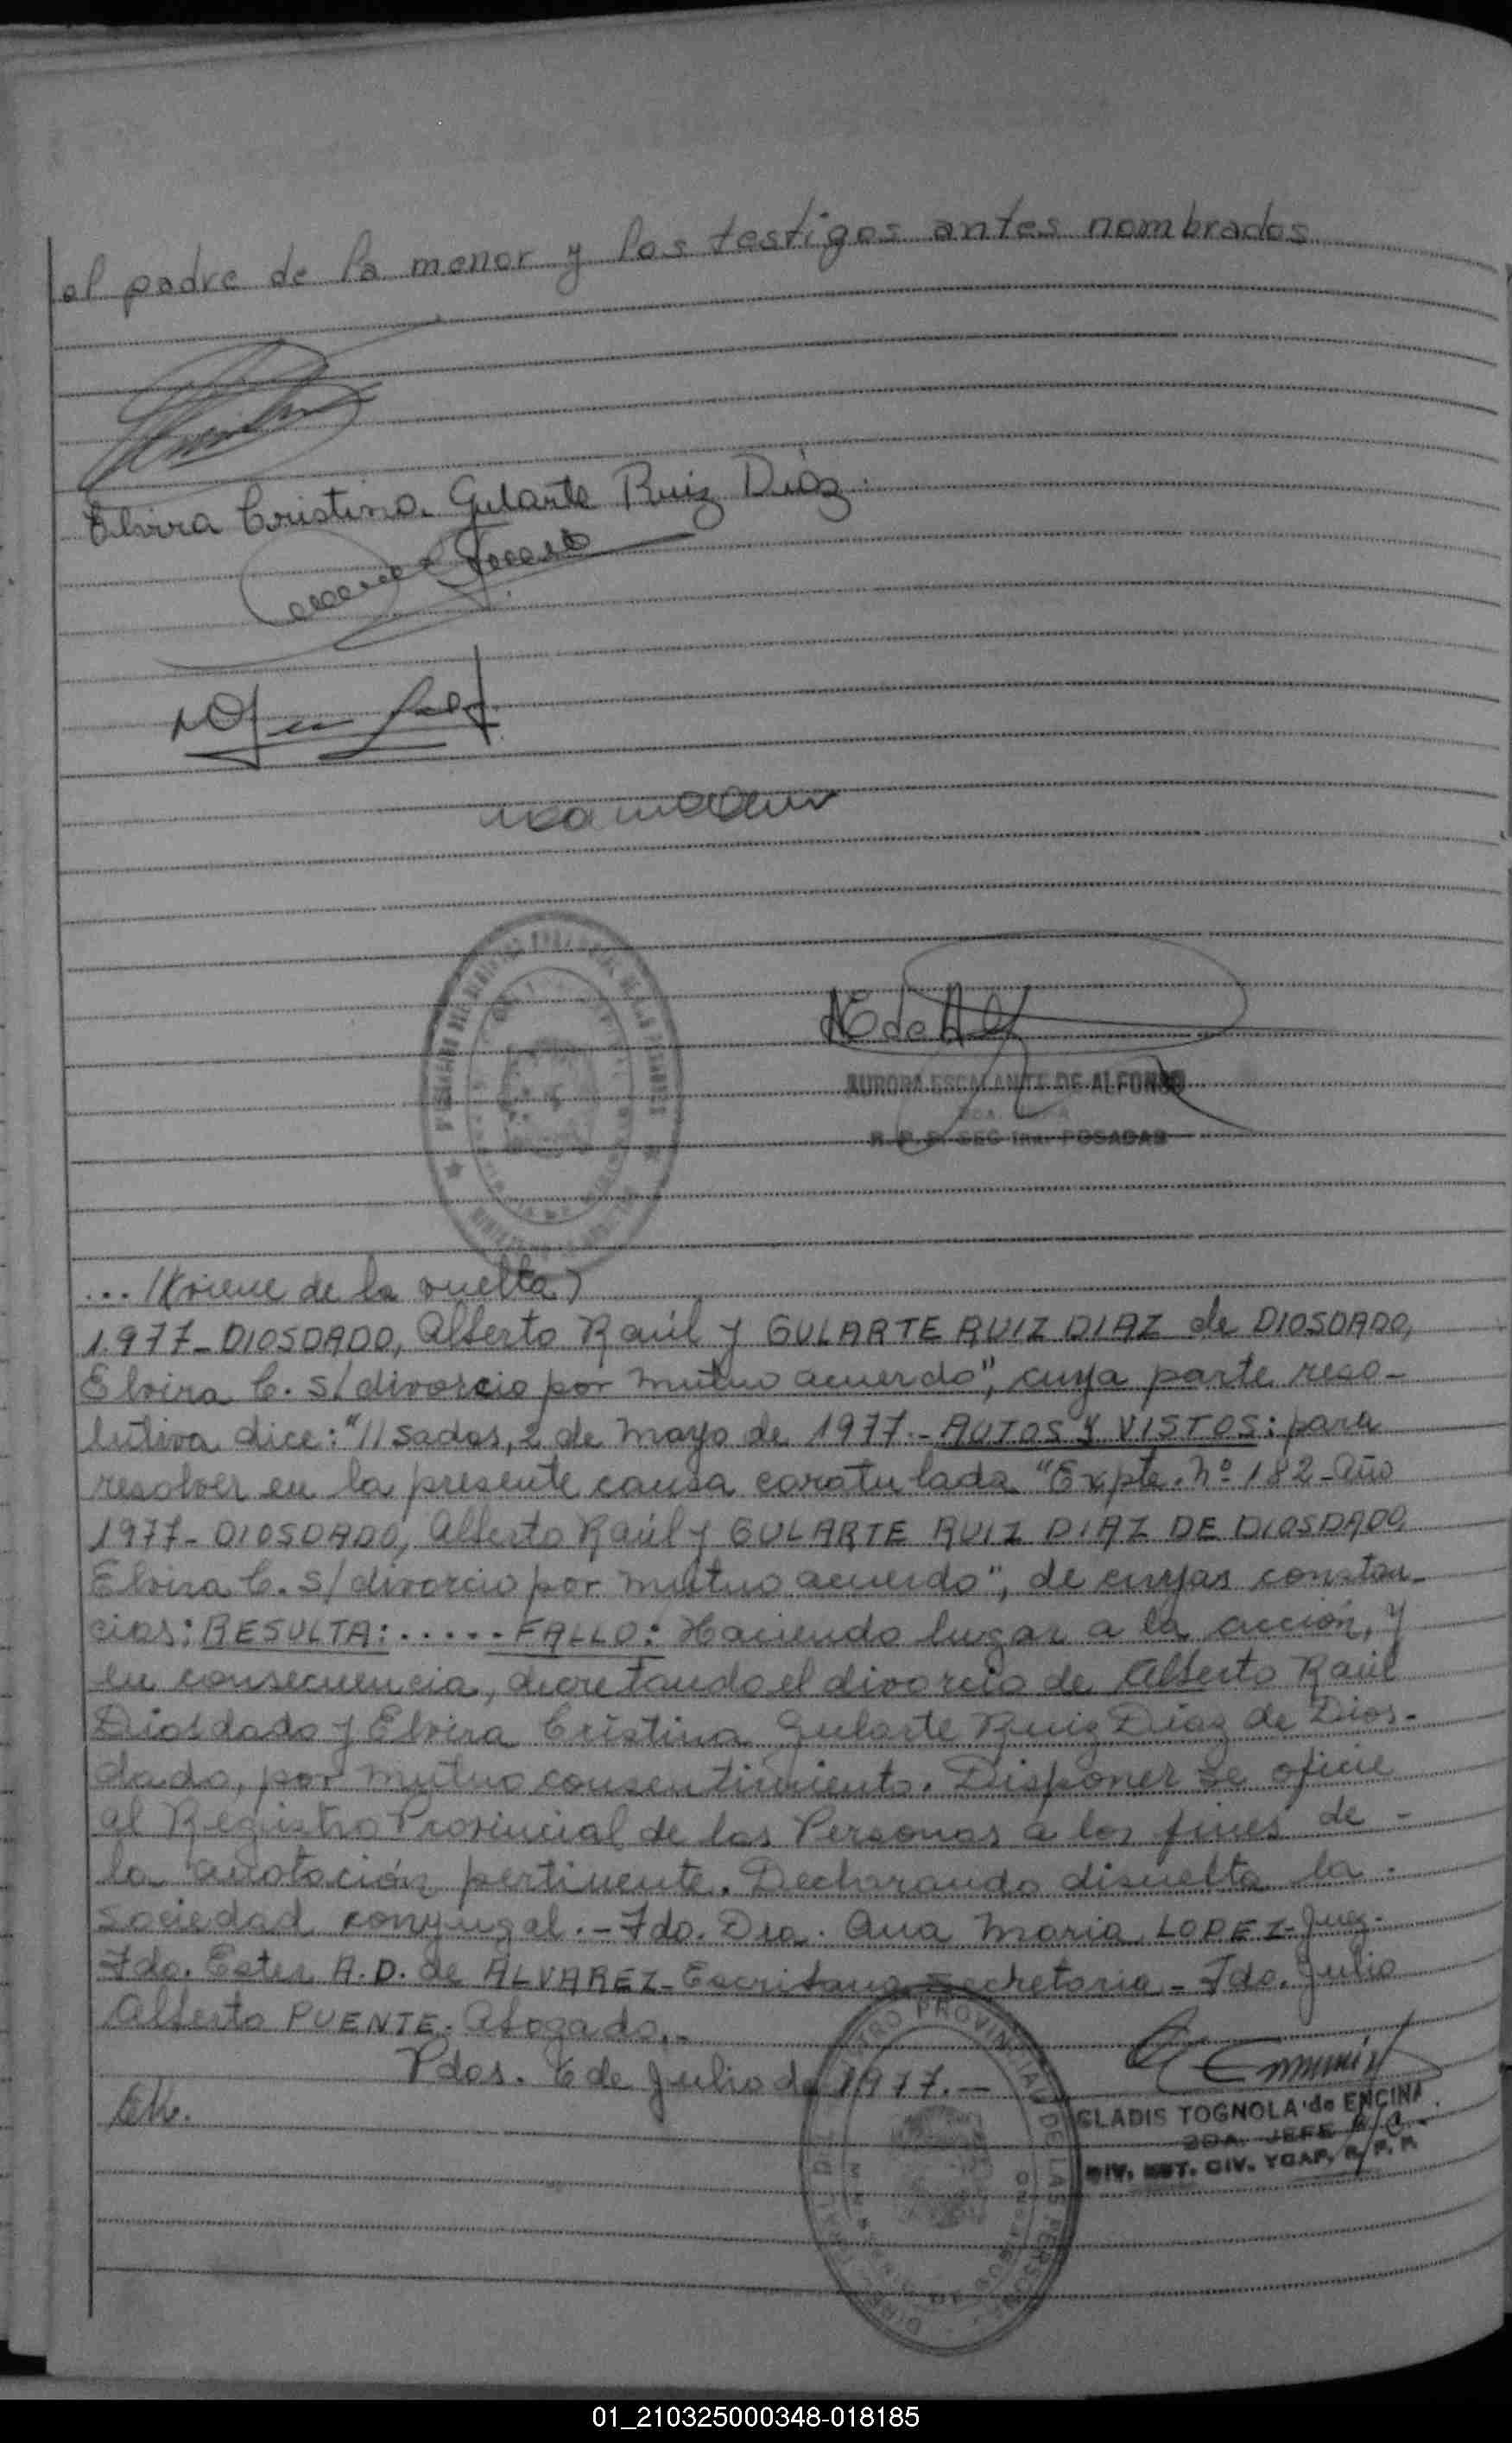 el padre de la menor y los testigos antes nombrados
Elvira Cristina Gularte Ruiz Diaz
AURORA ESCALANTE DE ALFONSO
R. P. P. SEC 1ra. POSADAS
... (Viene de la vuelta)
1.977-DIOSDADO, Alberto Raúl y GULARTE RUIZ DIAZ de DIOSDADO,
Elvira C. s/divorcio por mutuo acuerdo", cuya parte reso-
lutiva dice: "//sadas, 2 de mayo de 1977.- AUTOS Y VISTOS: para
resolver en la presente causa caratulada "Expte. nº 182-año
1977- DIOSDADO, Alberto Raúl y GULARTE RUIZ DIAZ DE DIOSDADO,
Elvira C. s/divorcio por mutuo acuerdo", de cuyas constan-
cias: RESULTA:......FALLO: Haciendo lugar a la acción, y
en consecuencia, decretando el divorcio de Alberto Raúl
Diosdado y Elvira Cristina Gularte Ruiz Diaz de Dios-
dado, por mutuo consentimiento. Disponer se oficie
al Registro Provincial de las Personas a los fines de -
la anotación pertinente. Declarando disuelta la -
sociedad conyugal.- Fdo. Dra. Ana Maria LOPEZ-Juez-
Fdo. Ester A.D. de ALVAREZ-Escribana Secretaria- Fdo. Julio
Alberto PUENTE- Abogado.-
Pdas. 6 de Julio de 1977.-
GLADIS TOGNOLA de ENCINA
2DA. JEFE A/C.
DIV. EST. CIV. Y CAP. R. P. P.
REGISTRO PROVINCIAL DE LAS PERSONAS
01_210325000348-018185